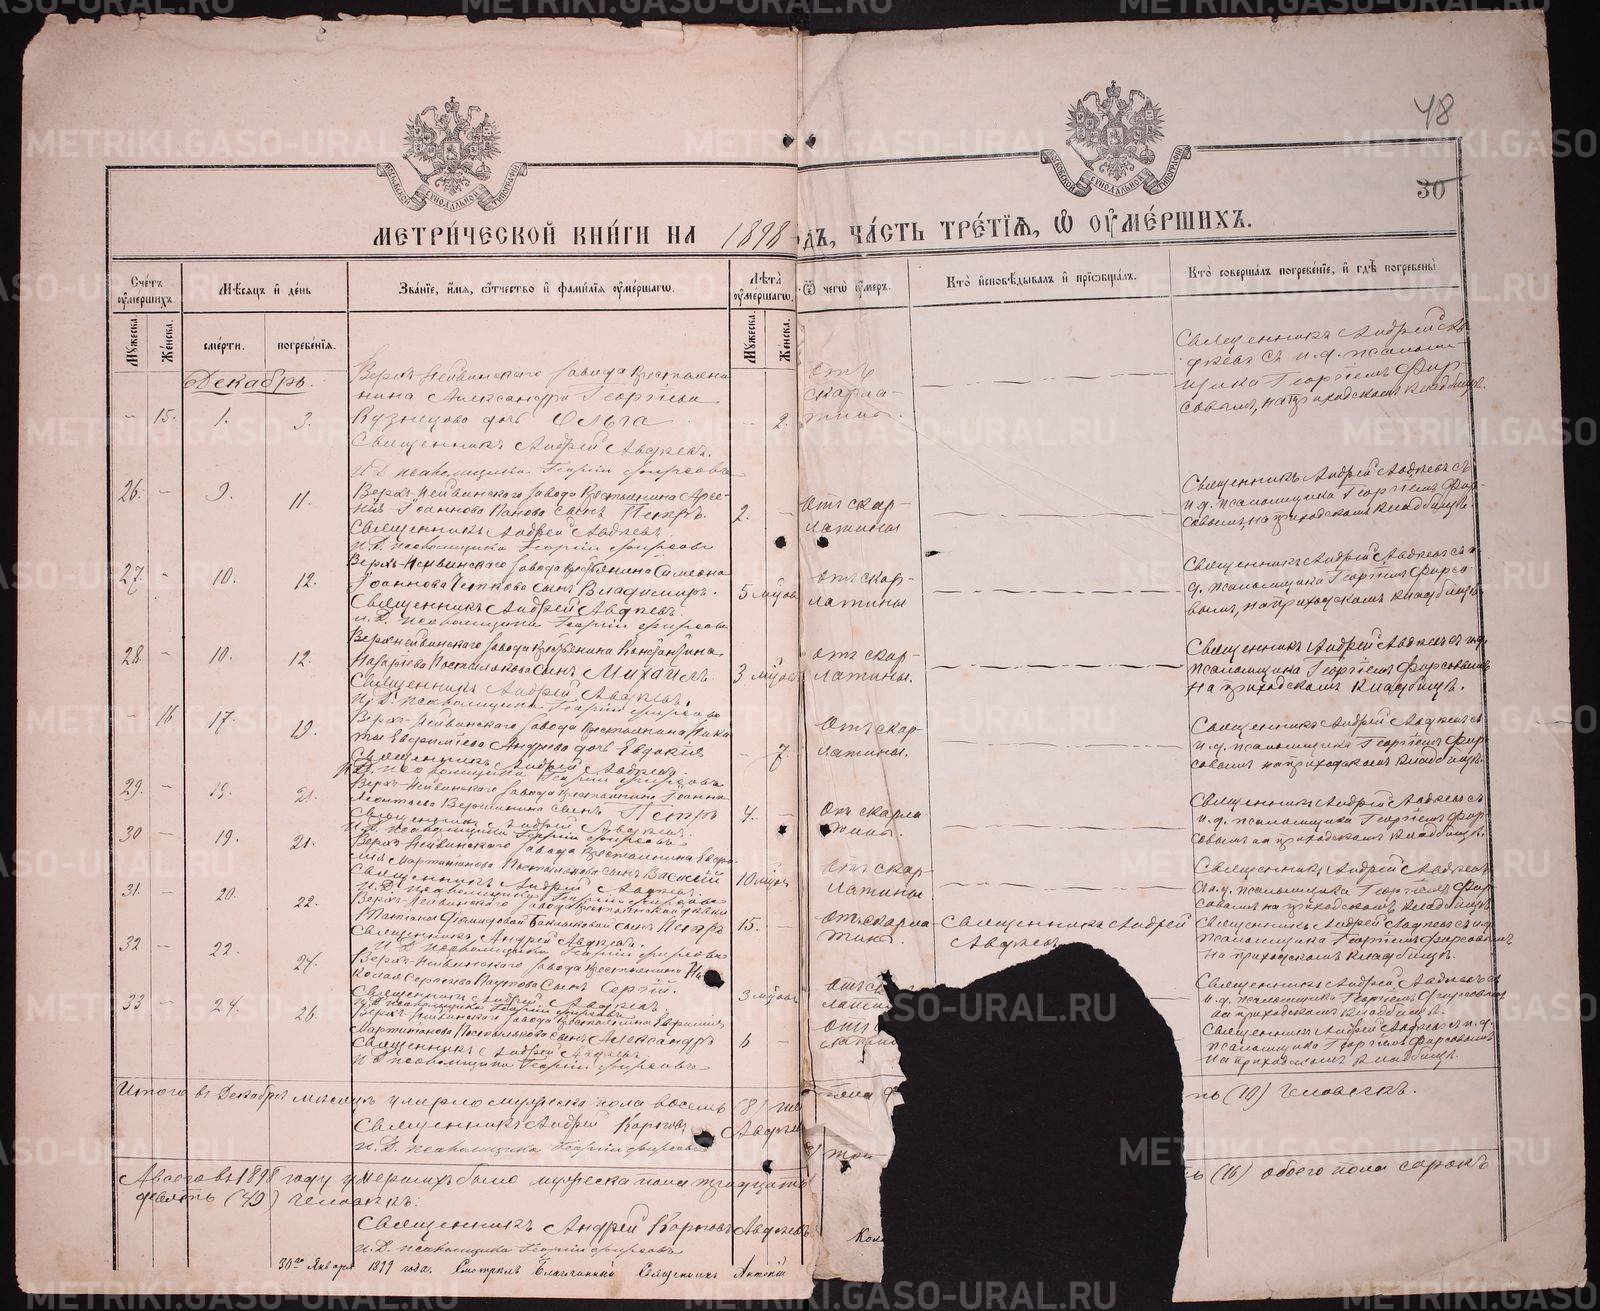 48
30
МОСКОВСКОЙ СѴНОДАЛЬНОЙ ТИПОГРАФІИ
МОСКОВСКОЙ СѴНОДАЛЬНОЙ ТИПОГРАФІИ
МЕТРИ́ЧЕСКОЙ КНИ́ГИ НА 1898 ДЪ, ЧА́СТЬ ТРЕ́ТІЯ, Ѡ ОУМЕ́РШИХЪ.
Счетъ оумершихъ.
Мужеска.
Женска.
Мѣсяцъ и день
смерти.
погребенія.
Званіе, имя, отчество и фамилія оумершагѡ.
Лѣта оумершагѡ.
Мужеска.
Женска.
Ѿ чегѡ оумеръ.
Кто исповѣдывалъ и пріобщалъ.
Кто совершалъ погребеніе, и гдѣ погребены
Декабрь.
- 15. 1. 3.
Верхъ-Нейвинскаго завода крестьянина Александра Георгіева
Кузнецова дочь Ольга - 2.
Отъ скарлатины.
Священникъ Андрей Авдѣевъ съ и.д. псаломщика Георгіемъ Фирсовымъ, на приходскомъ кладбищѣ.
Священникъ Андрей Авдѣевъ.
И. Д. псаломщика Георгій Фирсовъ
26. - 9. 11.
Верхъ-Нейвинскаго завода крестьянина Арсенія Іоаннова
сынъ Петръ. 2. -
Отъ скарлатины
Священникъ Андрей Авдѣевъ съ и.д. псаломщика Георгіемъ Фирсовымъ, на приходскомъ кладбищѣ.
Священникъ Андрей Авдѣевъ
И. Д. псаломщика Георгій Фирсовъ
27. - 10. 12.
Верхъ-Нейвинскаго завода крестьянина Симеона
Іоаннова сынъ Владимиръ. 5 мѣсяц
Отъ скарлатины
Священникъ Андрей Авдѣевъ съ и.д. псаломщика Георгіемъ Фирсовымъ, на приходскомъ кладбищѣ.
Священникъ Андрей Авдѣевъ.
И. Д. псаломщика Георгій Фирсовъ
28 - 10. 12.
Верхнейвинскаго завода крестьянина Константина
Назаріева Постылякова сынъ Михаилъ. 3 мѣсяц
Отъ скарлатины.
Священникъ Андрей Авдѣевъ съ и.д. псаломщика Георгіемъ Фирсовымъ на приходскомъ кладбищѣ.
Священникъ Андрей Авдѣевъ.
И. Д. псаломщика Георгій Фирсовъ
- 16 17. 19.
Верхъ-Нейвинскаго завода крестьянина Никиты
Евфиміева Андреева дочь Евдокія - 7.
Отъ скарлатины.
Священникъ Андрей Авдѣевъ съ и.д. псаломщика Георгіемъ Фирсовымъ на приходскомъ кладбищѣ.
Священникъ Андрей Авдѣевъ
И.Д. псаломщика Георгій Фирсовъ
29. - 19. 21.
Верхъ-Нейвинскаго завода крестьянина Іоанна
Леонтьева Вершинина сынъ Петръ 4. -
Отъ скарлатины.
Священникъ Андрей Авдѣевъ съ и.д. псаломщика Георгіемъ Фирсовымъ на приходскомъ кладбищѣ.
Священникъ Андрей Авдѣевъ.
И. Д. псаломщика Георгій Фирсовъ
30 - 19. 21.
Верхъ-Нейвинскаго завода крестьянина
Мартиніанова Постылякова сынъ Василій 10 мѣсяц
Отъ скарлатины
Священникъ Андрей Авдѣевъ и.д. псаломщика Георгіемъ Фирсовымъ на приходскомъ кладбищѣ.
Священникъ Андрей Авдѣевъ.
И. Д. псаломщика Георгій Фирсовъ
31. - 20. 22.
Верхъ-Нейвинскаго завода крестьянской дѣвки
Татіаны сынъ Петръ 15. -
Отъ скарлатины.
Священникъ Андрей Авдѣевъ
Священникъ Андрей Авдѣевъ съ и.д. псаломщика Георгіемъ Фирсовымъ на приходскомъ кладбищѣ.
Священникъ Андрей Авдѣевъ.
И. Д. псаломщика Георгій Фирсовъ
32 - 22. 24.
Верхъ-Нейвинскаго завода крестьянина
Сергѣева сынъ Сергій. 3 мѣсяц
Отъ
Священникъ Андрей Авдѣевъ съ и.д. псаломщика Георгіемъ Фирсовымъ на приходскомъ кладбищѣ.
Священникъ Андрей Авдѣевъ
И. Д. псаломщика Георгій Фирсовъ
33 - 24. 26.
Верхъ-Нейвинскаго завода крестьянина Евфимія
Мартиніанова Постылякова сынъ Александръ 6 -
Священникъ Андрей Авдѣевъ съ и.д. псаломщика Георгіемъ Фирсовымъ на приходскомъ кладбищѣ.
Священникъ Андрей Авдѣевъ
И Д псаломщика Георгій Фирсовъ
Итого въ Декабрѣ мѣсяцѣ умерло мужеска пола восемь (8) (10) человѣкъ.
Священникъ Андрей Авдѣе
И. Д. псаломщика Георгій Фирсовъ
А всего въ 1898 году умершихъ было мужеска пола тридцать три (16) обоего пола сорокъ
девять (49) человѣкъ:
Священникъ Андрей Авдѣевъ
И. Д. псаломщика Георгій Фирсовъ
30го Января 1899 года. Смотрѣлъ Благочинный Священникъ
METRIKI.GASO-URAL.RU